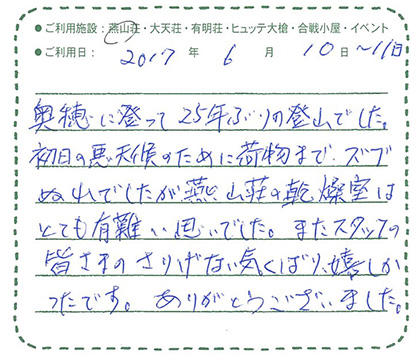 ●ご利用施設：燕山荘・大天荘・有明荘・ヒュッテ大槍・合戦小屋・イベント
●ご利用日：2017年6月10日～11日
奥穂に登って25年ぶりの登山でした。
初日の悪天候のために荷物まで、ズブ
ぬれでしたが燕山荘の乾燥室は
とても有難い思いでした。またスタッフの
皆さまのさりげない気くばり、嬉しか
ったです。ありがとうございました。